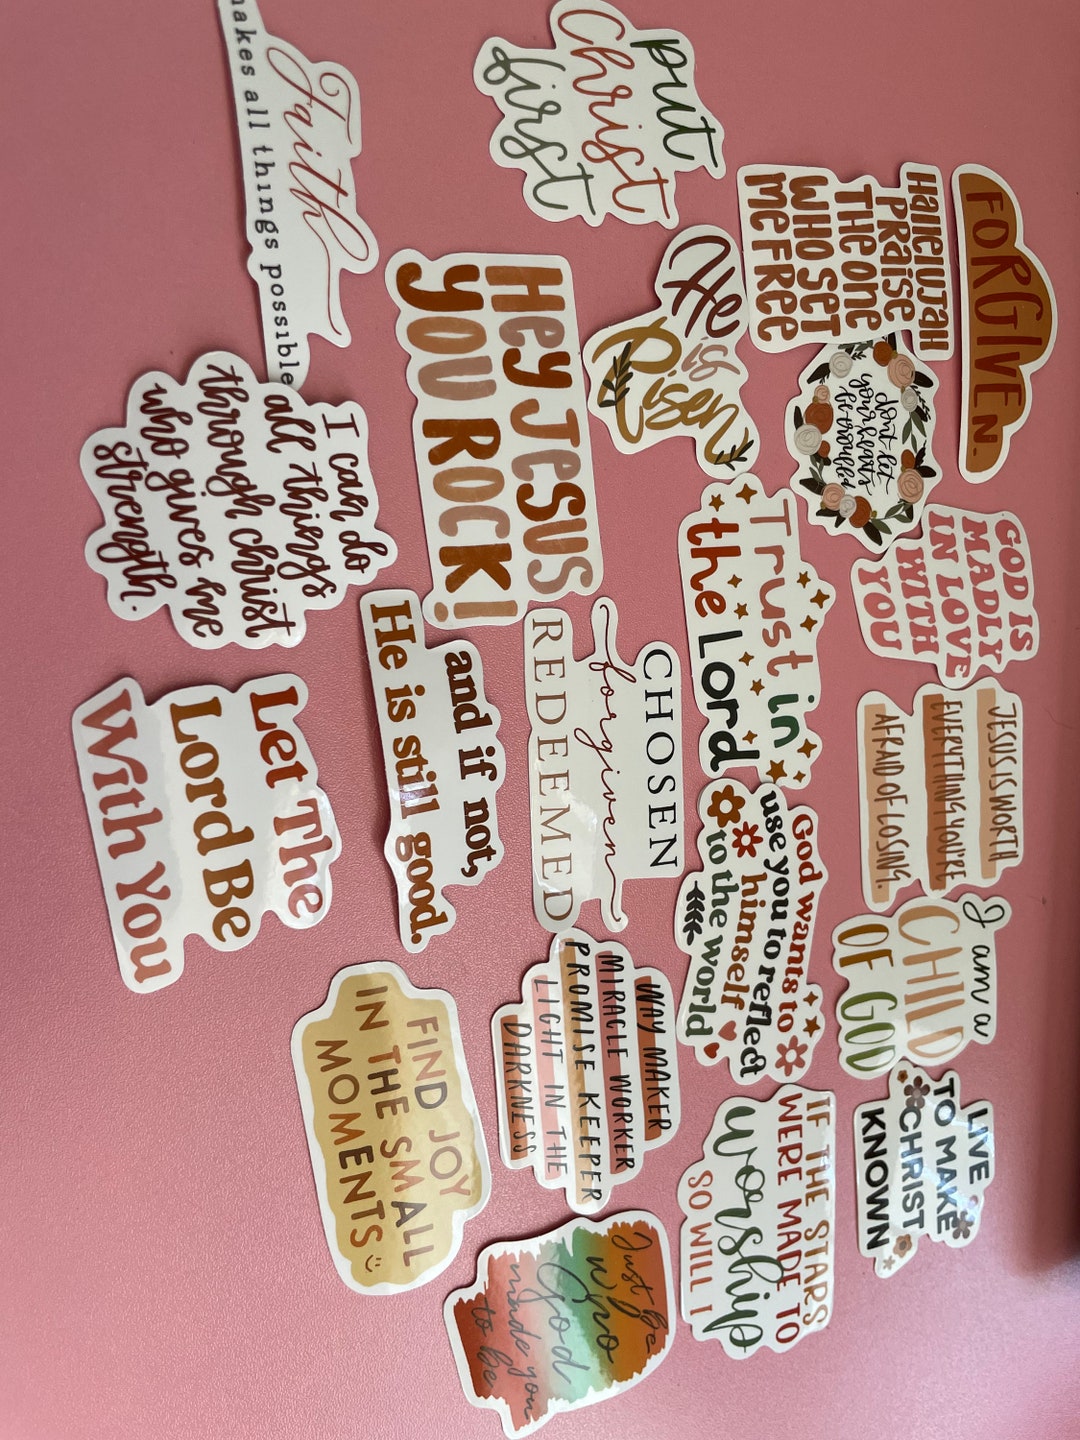 FORGIVEN.
Hallelujah
PRaise
THE ONE
WHO SET
ME FREE
put
Christ
first
Faith
makes all things possible
don't let
your hearts
be troubled
He
is
Risen
Hey Jesus
you ROCK!
I can do
all things
through christ
who gives me
strength.
GOD IS
MADLY
IN LOVE
WITH
YOU
Trust in
the Lord
CHOSEN
forgiven
REDEEMED
and if not,
He is still good.
Let The
Lord Be
With You
JESUS IS WORTH
EVERYTHING YOU'RE
AFRAID OF LOSING.
God wants to
use you to reflect
himself
to the world
I am a
CHILD
OF GOD
WAY MAKER
MIRACLE WORKER
PROMISE KEEPER
LIGHT IN THE
DARKNESS
FIND JOY
IN THE SMALL
MOMENTS
LIVE
TO MAKE
CHRIST
KNOWN
IF THE STARS
WERE MADE TO
worship
SO WILL I
Just be
who
God
made you
to be